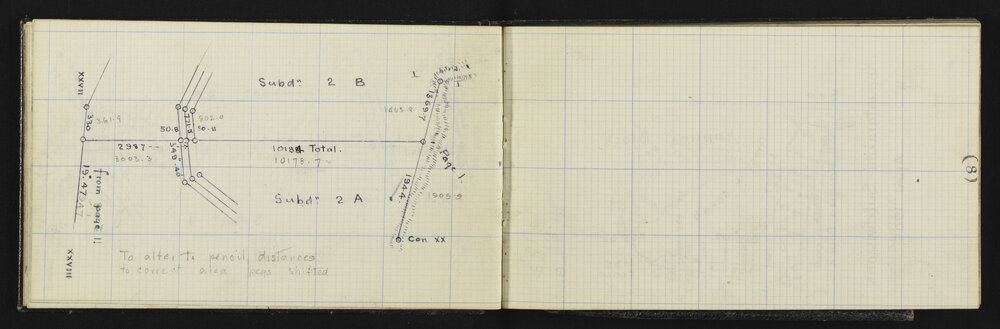 XXVII
Subdⁿ 2 B
1
1
330
361.9
50.8
771.5
802.0
50.11
1369.7
1463.2
2987
3003.3
10184 Total.
10178.7
349.40
Page 1.
1944
1905.9
19.47
from page 11
Subdⁿ 2 A
Con XX
XXVIII
To alter to pencil distances
to correct area pegs shifted
(8)